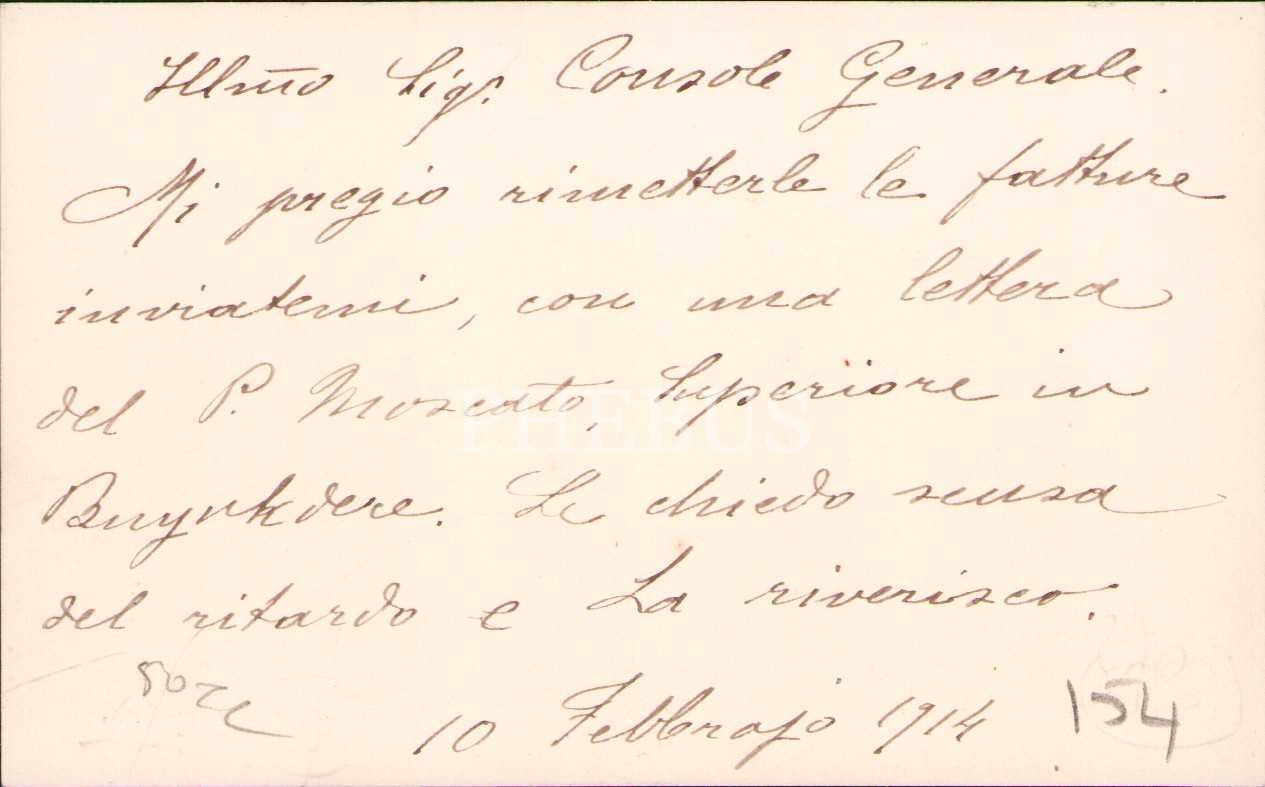 Illm̃o Sigr. Console Generale.
Mi pregio rimetterle le fatture
inviatemi, con una lettera
del P. Moscato, Superiore in
PHEBUS
Buyukdere. Le chiedo scusa
del ritardo e La riverisco.
10 Febbrajo 1914
154